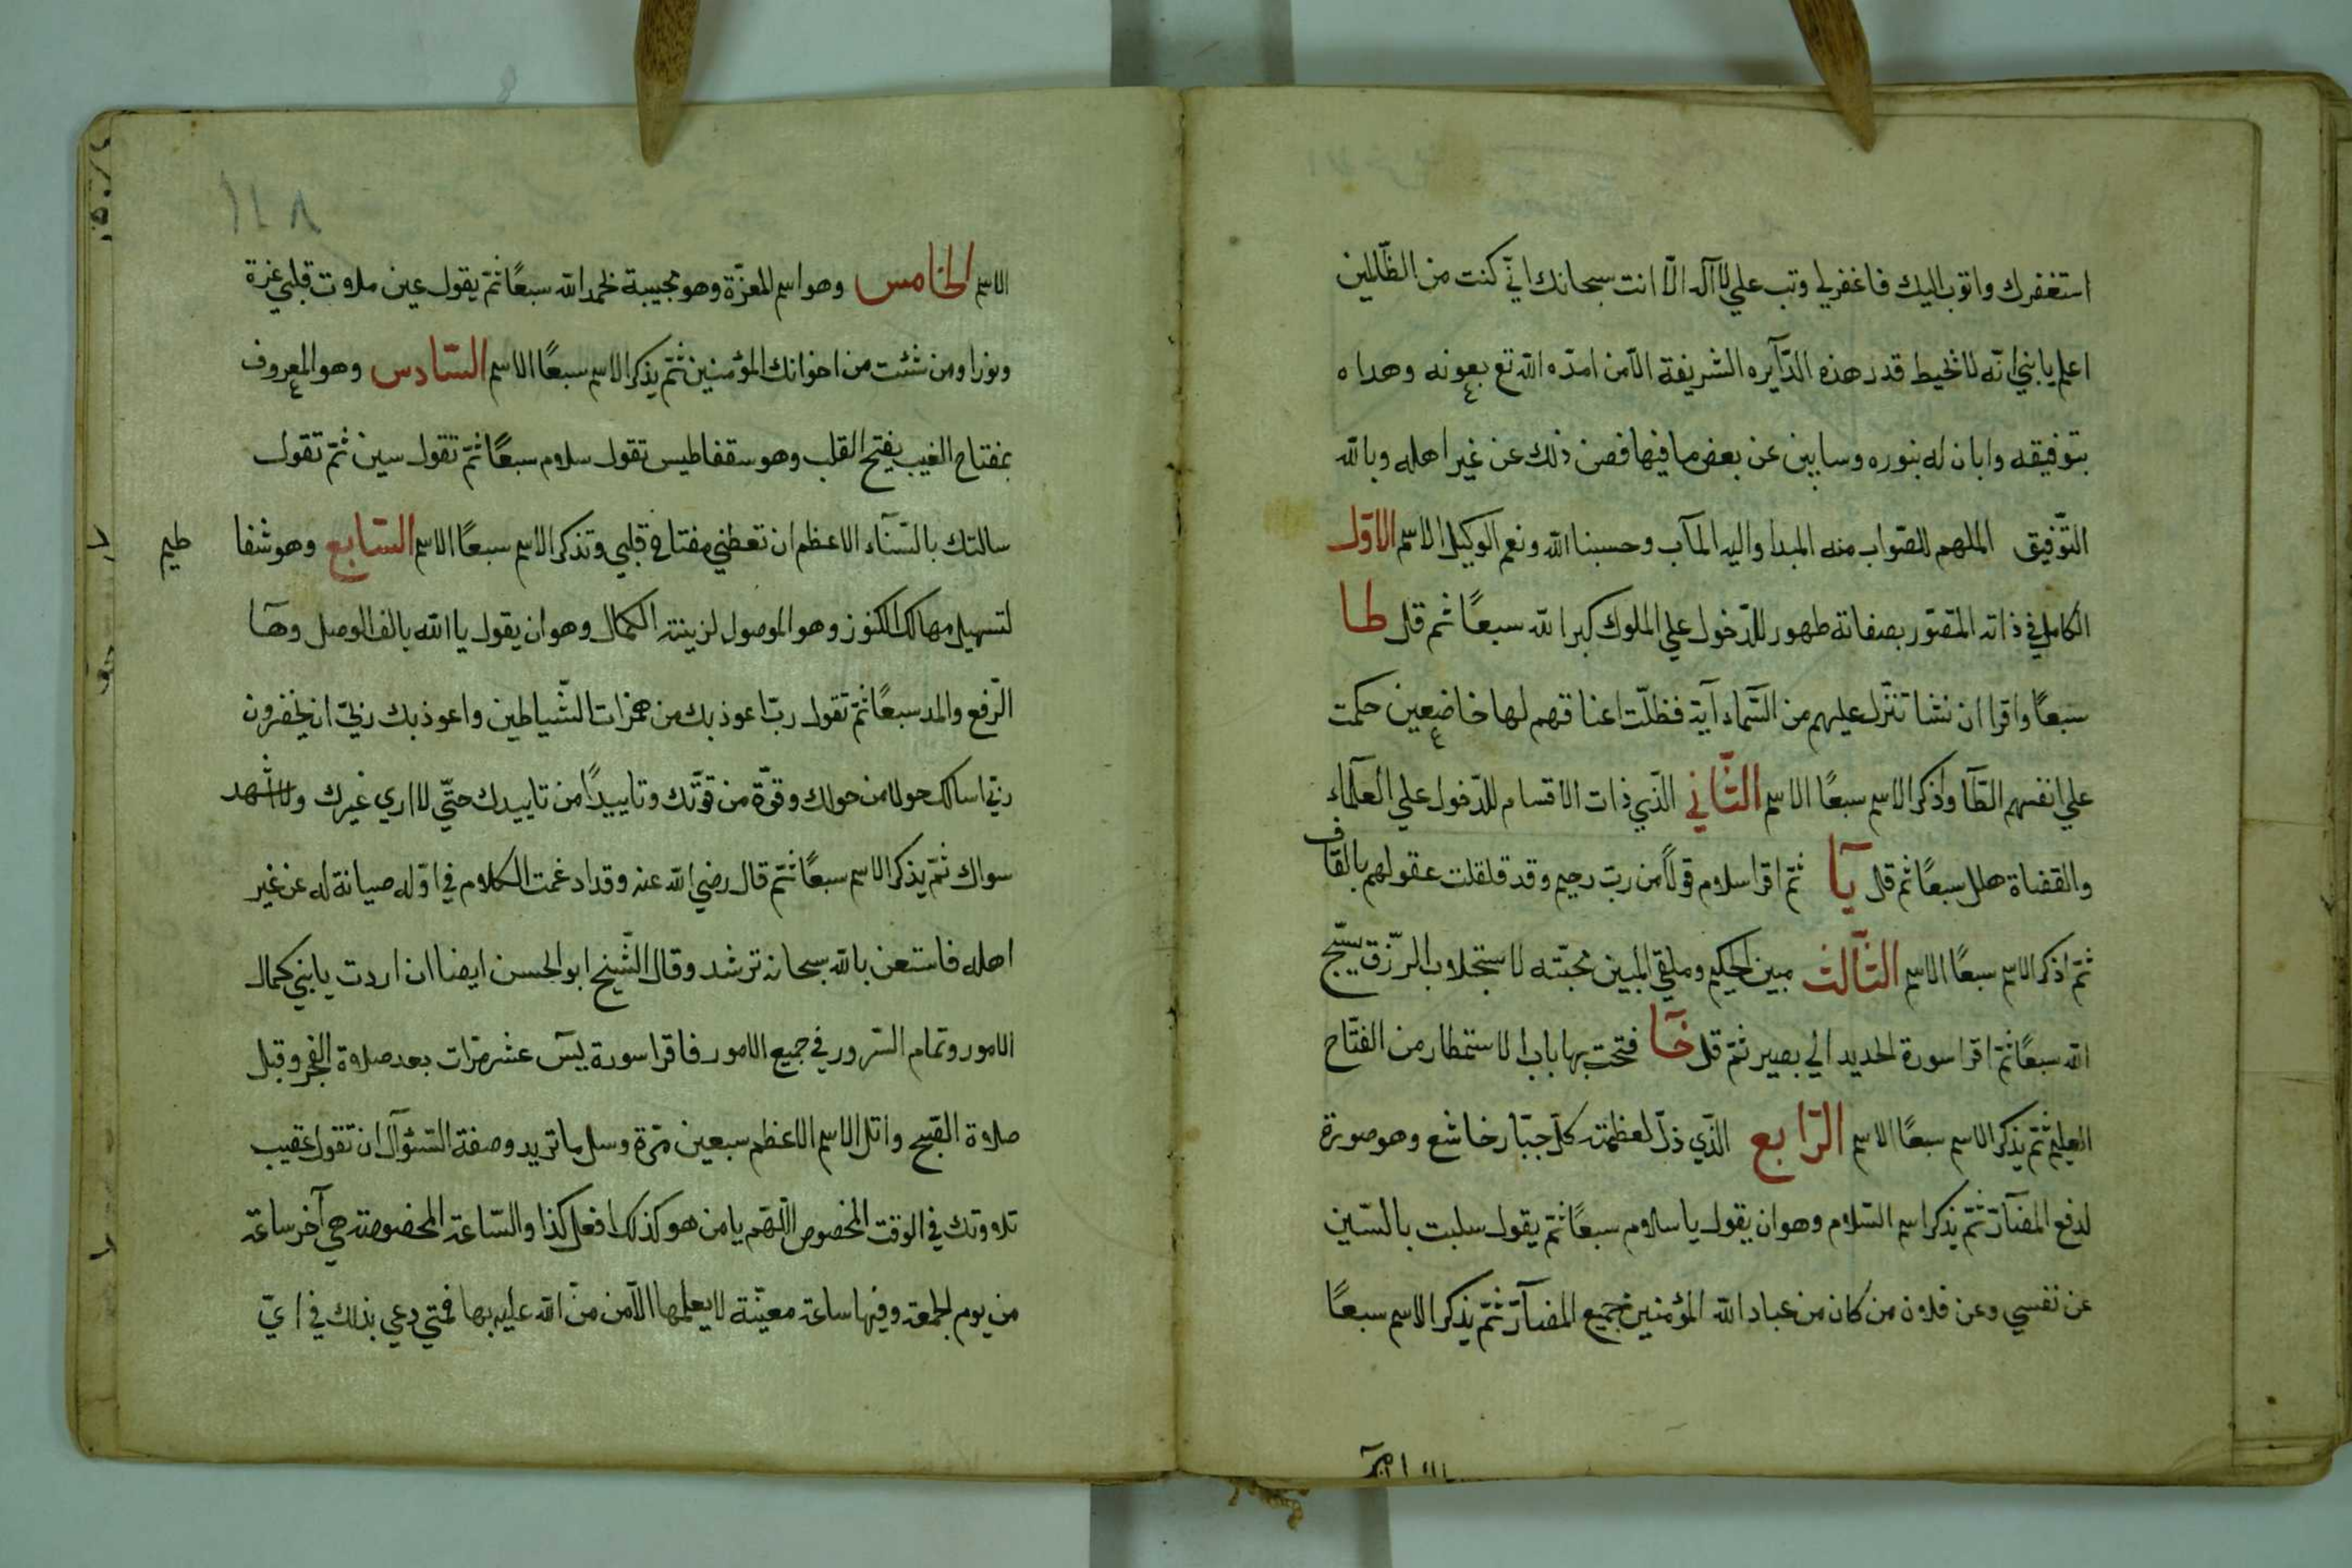 استغفرك واتوب اليك فاغفرلي وتب علي لا آله الّا انت سبحانك انّي كنت من الظّالمين
اعلم يابني انّه لا تحيط قدر هذه الدّآيره الشريفة الّا من امدّه الله تع بعونه وهداه
بتوفيقه وابان له بنوره وسابين عن بعض ما فيها فصن ذلك عن غير اهله وبالله
التّوفيق الملهم للصّواب منه المبدا واليه المآب وحسبنا الله ونعم الوكيل الاسم الاوّل
الكامل في ذاته المتصوّر بصفاته طهور للدّخول علي الملوك كبر الله سبعًا ثم قل طا
سبعًا واقرا ان نشا ننزّل عليهم من السّماء آية فظلّت اعناقهم لها خاضعين حكمت
علي انفسهم الطّا واذكر الاسم سبعًا الاسم الثّاني الّذي ذات الاقسام للدّخول علي العلمآء
والقضاة هلل سبعًا ثم قل يآ ثمّ اقرا سلام قولًا من ربّ رحيم وقد قلقلت عقولهم بالقاف
ثمّ اذكر الاسم سبعًا الاسم الثّالث مبين الحكيم وملقي المبين محبّته لاستجلاب الرّزق سبّح
الله سبعًا ثمّ اقرا سورة الحديد الي بصير ثمّ قل خآ فتحت بها باب الاستمطار من الفتّاح
العليم ثمّ يذكر الاسم سبعًا الاسم الرّابع الّذي ذلّ لعظمته كلّ جبّار خاشع وهو صورة
لدفع المضآرّ ثمّ يذكر اسم السّلام وهو ان يقول ياسلام سبعًا ثمّ يقول سلبت بالسّين
عن نفسي وعن فلان من كان من عباد الله المؤمنين جميع المضآرّ ثمّ يذكر الاسم سبعًا
الاسم الخامس وهو اسم المعزّة وهو محببة تحمد الله سبعًا ثمّ يقول عين ملات قلبي عزة
ونورا ومن شئت من اخوانك المؤمنين ثمّ يذكر الاسم سبعًا الاسم السّادس وهو المعروف
بمفتاح الغيب يفتح القلب وهو سقفاطيس تقول سلام سبعًا ثمّ تقول سين ثمّ تقول
سالتك بالسّنآء الاعظم ان تعطني مفتاح قلبي وتذكر الاسم سبعًا الاسم السّابع وهو شفا
طيم
لتسهيل مهالك الكنوز وهو الموصول لزينة الكمال وهو ان يقول يا الله بالف الوصل وهآ
الرّفع والمد سبعًا ثمّ تقول ربّ اعوذ بك من همزات الشّياطين واعوذ بك ربّ ان يحضرون
ربّي اسالك حولا من حولك وقوّة من قوّتك وتاييدًا من تاييدك حتّي لا اري غيرك ولا اشهد
سواك ثمّ يذكر الاسم سبعًا ثمّ قال رضي الله عنه وقد ادغمت الكلام في اوّله صيانة له عن غير
اهله فاستعن بالله سبحانه ترشد وقال الشّيخ ابو الحسن ايضا ان اردت يابني كمال
الامور وتمام السّرور في جميع الامور فاقرا سورة يسٓ عشر مرّات بعد صلاة الفجر وقبل
صلاة الصّبح واتل الاسم الاعظم سبعين مرّة وسل ما تريد وصفة السّؤآل ان تقول عقيب
تلاوتك في الوقت المخصوص اللّهم يا من هو كذلك افعل كذا والسّاعة المخصوصة هي آخر ساعة
من يوم الجمعة وفيها ساعة معيّنة لا يعلمها الّا من منّ الله عليه بها فمتي دعي بذلك في ايّ